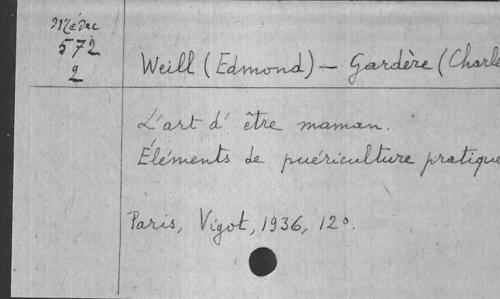 Médec
572
2
Weill (Edmond) — Gardère (Charle
L'art d' être maman.
Éléments de puériculture pratique
Paris, Vigot, 1936, 12º.